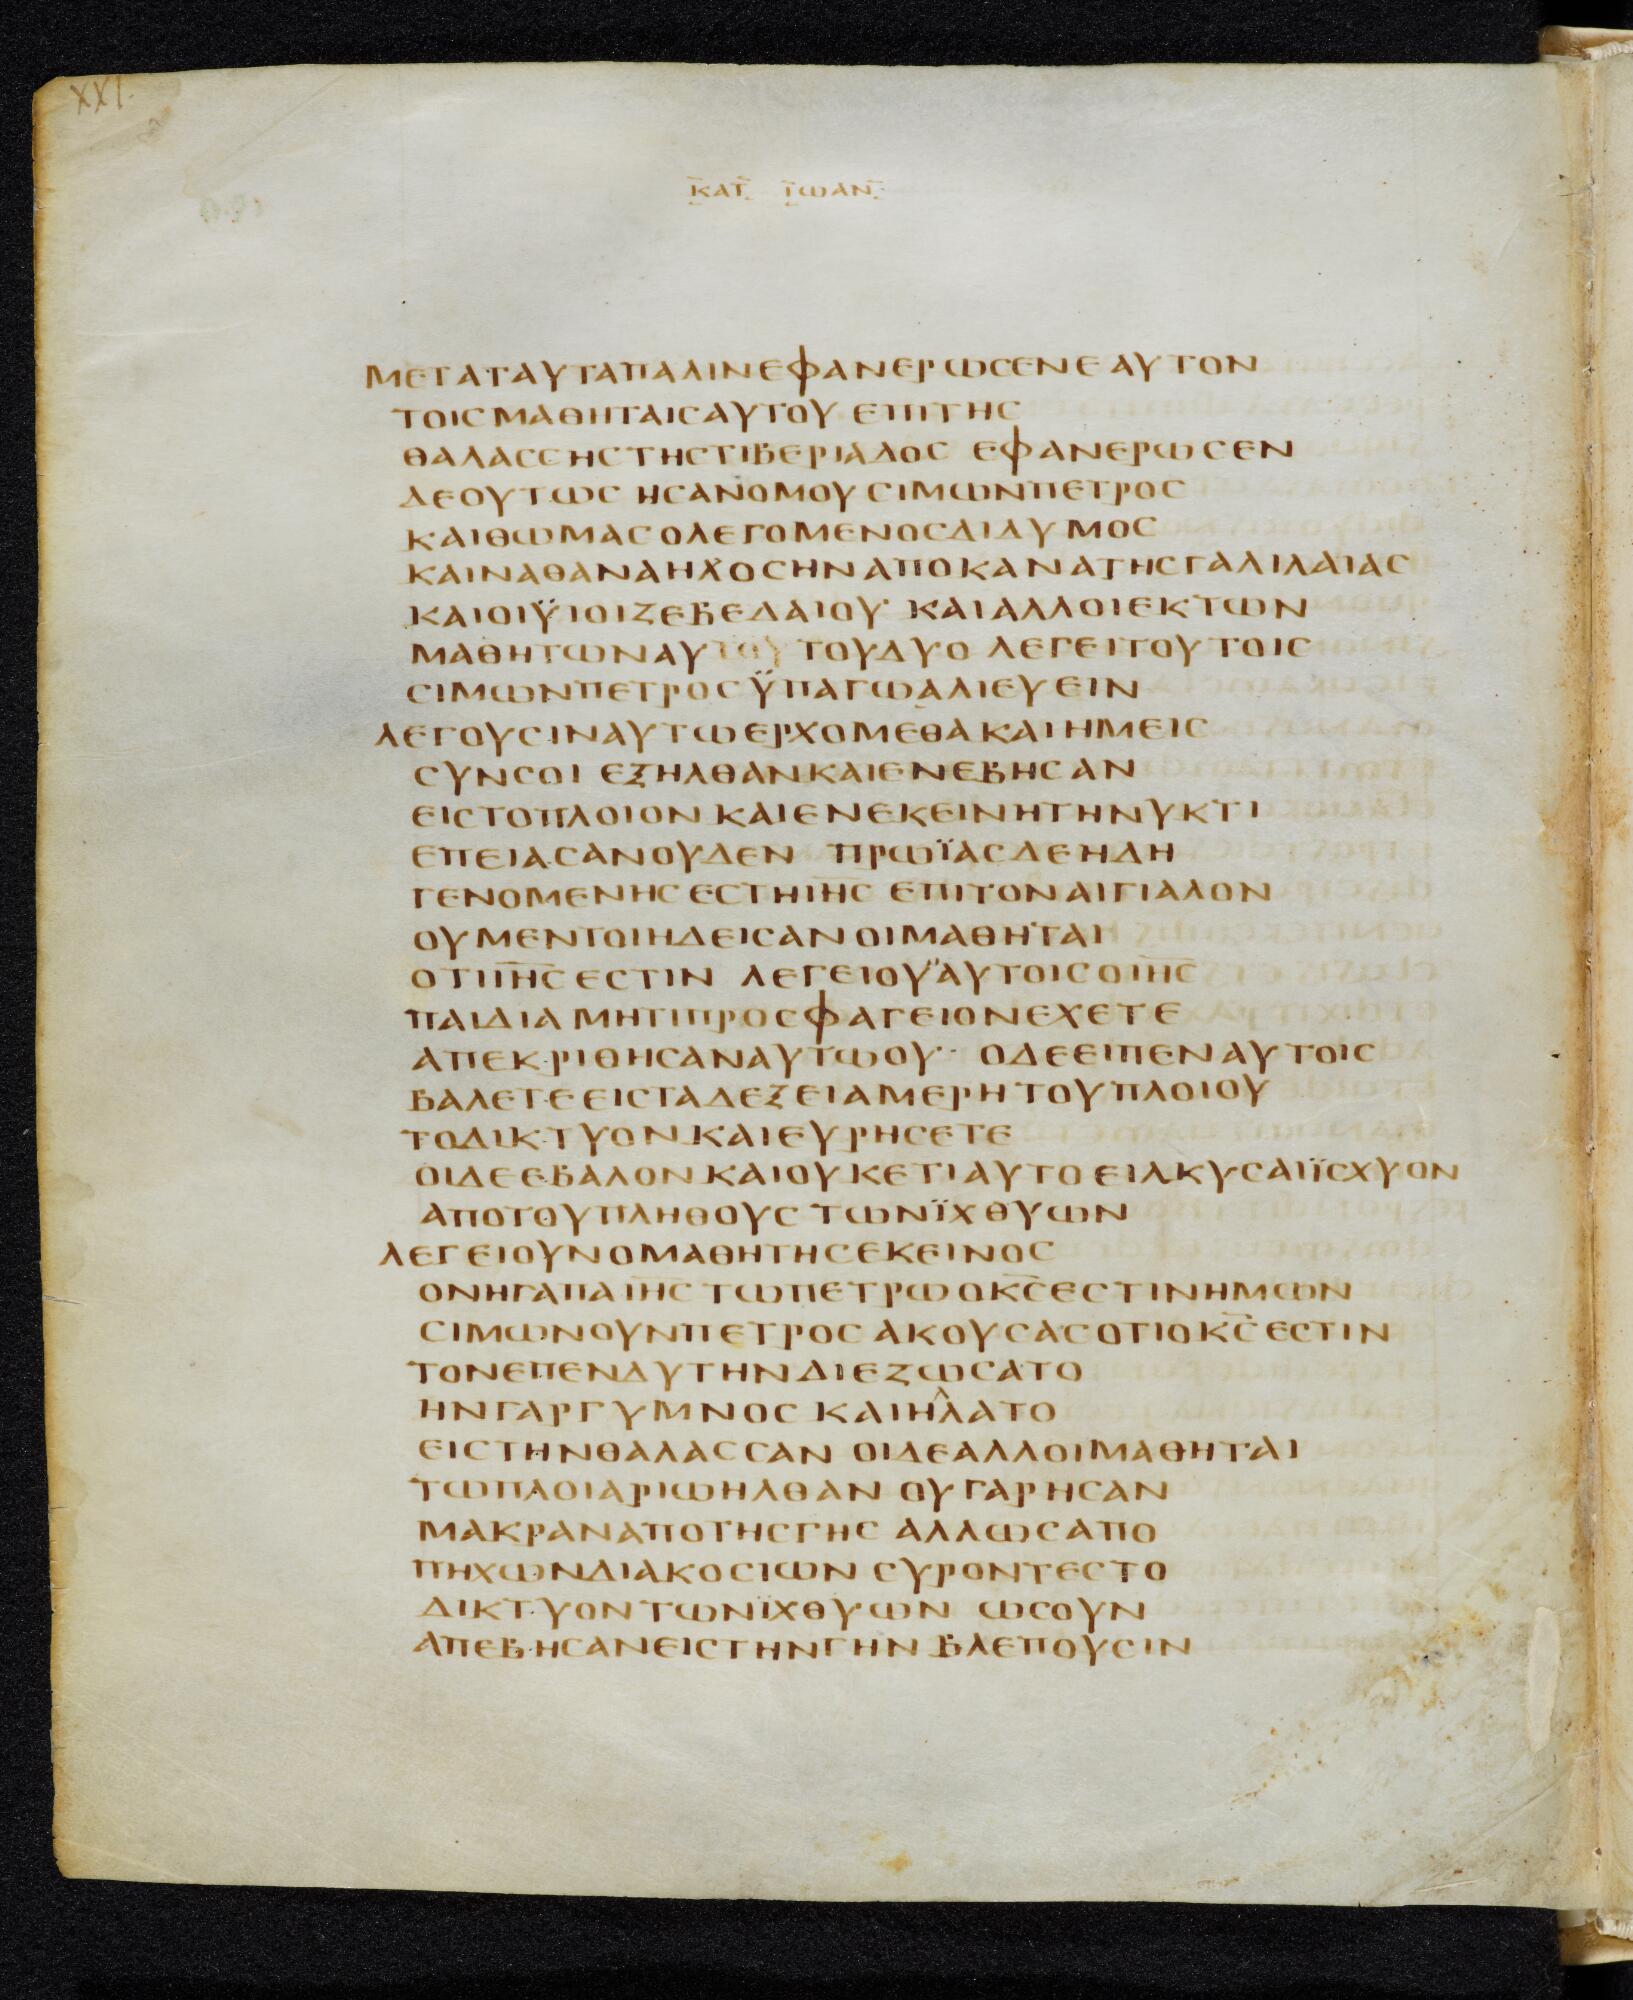 XXI.
ΚΑΤ ΙΩΑΝ
ΜΕΤΑΤΑΥΤΑΠΑΛΙΝΕΦΑΝΕΡΩCΕΝΕΑΥΤΟΝ
ΤΟΙCΜΑΘΗΤΑΙCΑΥΤΟΥ ΕΠΙΤΗC
ΘΑΛΑCCΗCΤΗCΤΙΒΕΡΙΑΔΟC ΕΦΑΝΕΡΩCΕΝ
ΔΕΟΥΤΩC ΗCΑΝΟΜΟΥCΙΜΩΝΠΕΤΡΟC
ΚΑΙΘΩΜΑCΟΛΕΓΟΜΕΝΟCΔΙΔΥΜΟC
ΚΑΙΝΑΘΑΝΑΗΛΟCΗΝΑΠΟΚΑΝΑΤΗCΓΑΛΙΛΑΙΑC
ΚΑΙΟΙΫΙΟΙΖΕΒΕΔΑΙΟΥ ΚΑΙΑΛΛΟΙΕΚΤΩΝ
ΜΑΘΗΤΩΝΑΥΤΟΥ ΤΟΥΔΥΟ ΛΕΓΕΙΤΟΥΤΟΙC
CΙΜΩΝΠΕΤΡΟCΫΠΑΓΩΑΛΙΕΥΕΙΝ
ΛΕΓΟΥCΙΝΑΥΤΩΕΡΧΟΜΕΘΑΚΑΙΗΜΕΙC
CΥΝCΟΙ ΕΞΗΛΘΑΝΚΑΙΕΝΕΒΗCΑΝ
ΕΙCΤΟΠΛΟΙΟΝ ΚΑΙΕΝΕΚΕΙΝΗΤΗΝΥΚΤΙ
ΕΠΕΙΑCΑΝΟΥΔΕΝ ΠΡΩΪΑCΔΕΗΔΗ
ΓΕΝΟΜΕΝΗCΕCΤΗΙΗC ΕΠΙΤΟΝΑΙΓΙΑΛΟΝ
ΟΥΜΕΝΤΟΙΗΔΕΙCΑΝΟΙΜΑΘΗΤΑΙ
ΟΤΙΙΗCΕCΤΙΝ ΛΕΓΕΙΟΥΑΥΤΟΙCΟΙΗC
ΠΑΙΔΙΑΜΗΤΙΠΡΟCΦΑΓΕΙΟΝΕΧΕΤΕ
ΑΠΕΚΡΙΘΗCΑΝΑΥΤΩΟΥ· ΟΔΕΕΙΠΕΝΑΥΤΟΙC
ΒΑΛΕΤΕΕΙCΤΑΔΕΞΕΙΑΜΕΡΗΤΟΥΠΛΟΙΟΥ
ΤΟΔΙΚΤΥΟΝΚΑΙΕΥΡΗCΕΤΕ
ΟΙΔΕΕΒΑΛΟΝΚΑΙΟΥΚΕΤΙΑΥΤΟΕΙΛΚΥCΑΙΪCΧΥΟΝ
ΑΠΟΤΟΥΠΛΗΘΟΥC ΤΩΝΪΧΘΥΩΝ
ΛΕΓΕΙΟΥΝΟΜΑΘΗΤΗCΕΚΕΙΝΟC
ΟΝΗΓΑΠΑΙΗC ΤΩΠΕΤΡΩΟΚCΕCΤΙΝΗΜΩΝ
CΙΜΩΝΟΥΝΠΕΤΡΟC ΑΚΟΥCΑCΟΤΙΟΚCΕCΤΙΝ
ΤΟΝΕΠΕΝΔΥΤΗΝΔΙΕΖΩCΑΤΟ
ΗΝΓΑΡΓΥΜΝΟC ΚΑΙΗΛΛΑΤΟ
ΕΙCΤΗΝΘΑΛΑCCΑΝ ΟΙΔΕΑΛΛΟΙΜΑΘΗΤΑΙ
ΤΩΠΛΟΙΑΡΙΩΗΛΘΑΝ ΟΥΓΑΡΗCΑΝ
ΜΑΚΡΑΝΑΠΟΤΗCΓΗC ΑΛΛΩCΑΠΟ
ΠΗΧΩΝΔΙΑΚΟCΙΩΝ CΥΡΟΝΤΕCΤΟ
ΔΙΚΤΥΟΝΤΩΝΪΧΘΥΩΝ ΩCΟΥΝ
ΑΠΕΒΗCΑΝΕΙCΤΗΝΓΗΝ ΒΛΕΠΟΥCΙΝ